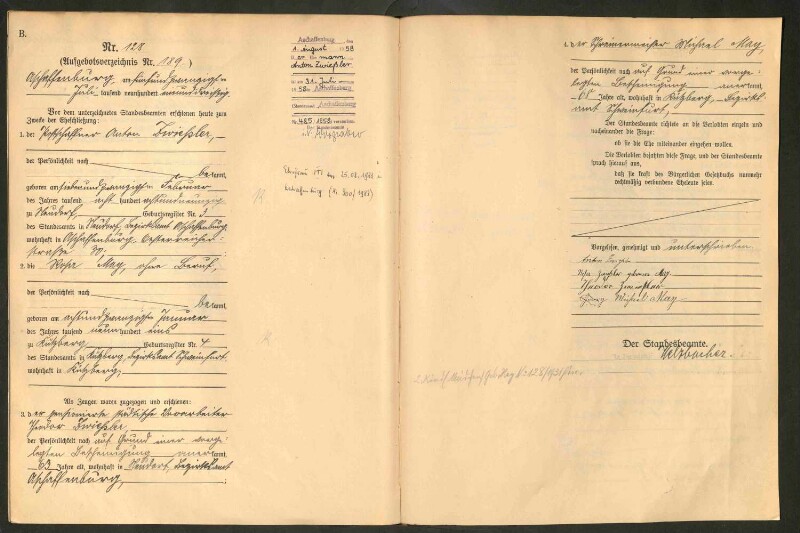 B.
Nr. 128
(Aufgebotsverzeichnis Nr. 189)
Aschaffenburg, am fünfundzwanzigsten
Juli tausend neunhundert einunddreißig
Vor dem unterzeichneten Standesbeamten erschienen heute zum
Zwecke der Eheschließung:
1. der Postschaffner Anton Zwießler,
der Persönlichkeit nach
bekannt,
geboren am siebenundzwanzigsten Februar
des Jahres tausend acht hundert achtundneunzig
zu Neudorf, Geburtsregister Nr. 3
des Standesamts in Neudorf, Bezirksamt Aschaffenburg,
wohnhaft in Aschaffenburg, Oesterreicher-
straße
2. die Rosa May, ohne Beruf,
der Persönlichkeit nach
bekannt,
geboren am achtundzwanzigsten Januar
des Jahres tausend neunhundert eins
zu Kützberg, Geburtsregister Nr. 4
des Standesamts in Kützberg, Bezirksamt Schweinfurt,
wohnhaft in Kützberg,
Als Zeugen waren zugezogen und erschienen:
3. der pensionierte städtische Vorarbeiter
Theodor Zwießler,
der Persönlichkeit nach auf Grund einer vorge-
legten Bescheinigung anerkannt,
63 Jahre alt, wohnhaft in Neudorf, Bezirksamt
Aschaffenburg,
Aschaffenburg, den
1. August 1958
Der Ehemann
Anton Zwießler
ist am 31. Juli
1958 in Aschaffenburg
Standesamt Aschaffenburg
Nr. 485/1958 verstorben.
Der Standesbeamte
4. der Schreinermeister Michael May
der Persönlichkeit nach auf Grund einer vorge-
legten Bescheinigung anerkannt,
68 Jahre alt, wohnhaft in Kützberg, Bezirks-
amt Schweinfurt,
Der Standesbeamte richtete an die Verlobten einzeln und
nacheinander die Frage:
ob sie die Ehe miteinander eingehen wollen.
Die Verlobten bejahten diese Frage, und der Standesbeamte
sprach hierauf aus,
daß sie kraft des Bürgerlichen Gesetzbuchs nunmehr
rechtmäßig verbundene Eheleute seien.
Vorgelesen, genehmigt und unterschrieben.
Anton Zwießler
Rosa Zwießler geborene May
Theodor Zwießler
Michael May
Der Standesbeamte.